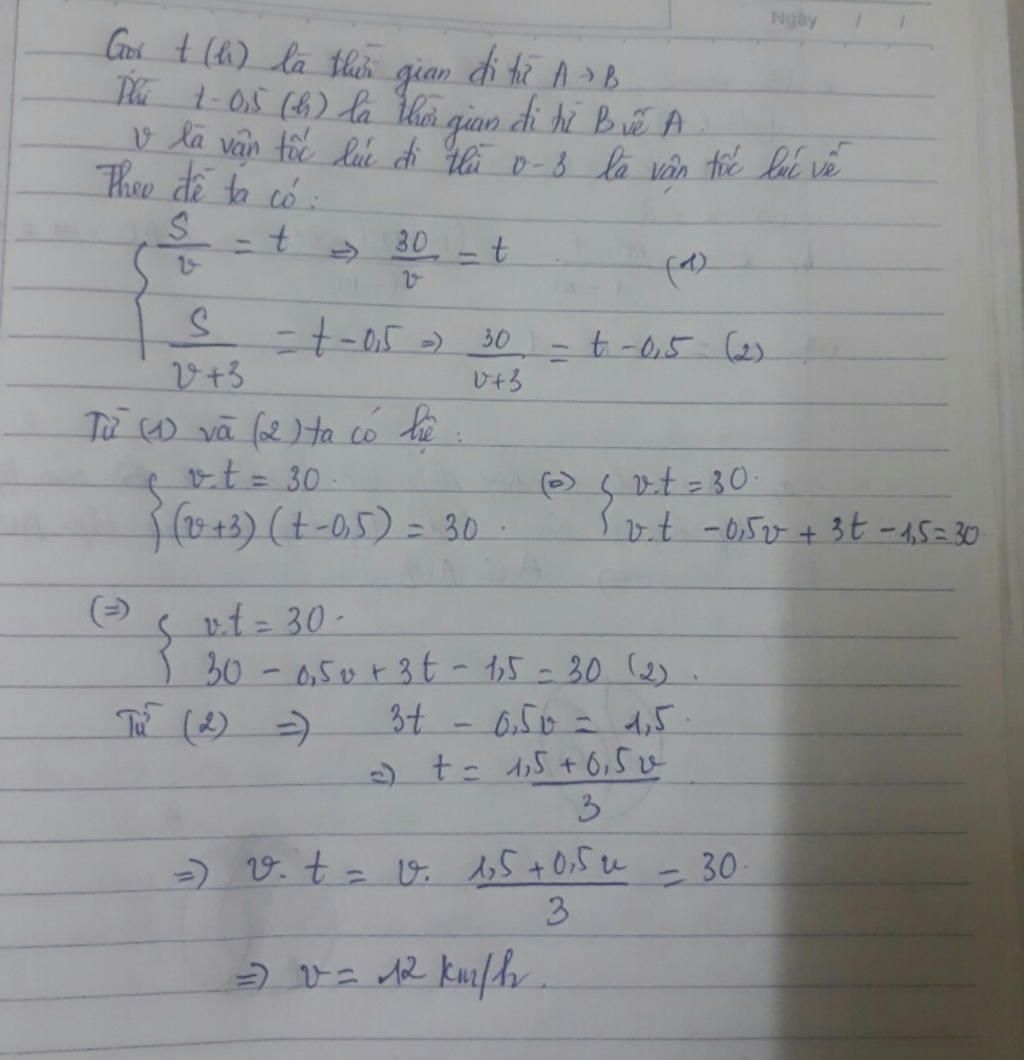 Ngày / /
Gọi t (h) là thời gian đi từ A → B
Thì t - 0,5 (h) là thời gian đi từ B về A.
v là vận tốc lúc đi thì v - 3 là vận tốc lúc về
Theo đề ta có:
{ S/v = t ⇒ 30/v = t (1)
S/(v+3) = t - 0,5 ⇒ 30/(v+3) = t - 0,5 (2)
Từ (1) và (2) ta có hệ:
{ v.t = 30. (⇔) { v.t = 30.
(v+3)(t-0,5) = 30. v.t - 0,5v + 3t - 1,5 = 30
(⇒) { v.t = 30.
30 - 0,5v + 3t - 1,5 = 30 (2).
Từ (2) ⇒ 3t - 0,5v = 1,5.
⇒ t = (1,5 + 0,5v)/3
⇒ v.t = v. (1,5 + 0,5v)/3 = 30.
⇒ v = 12 km/h.